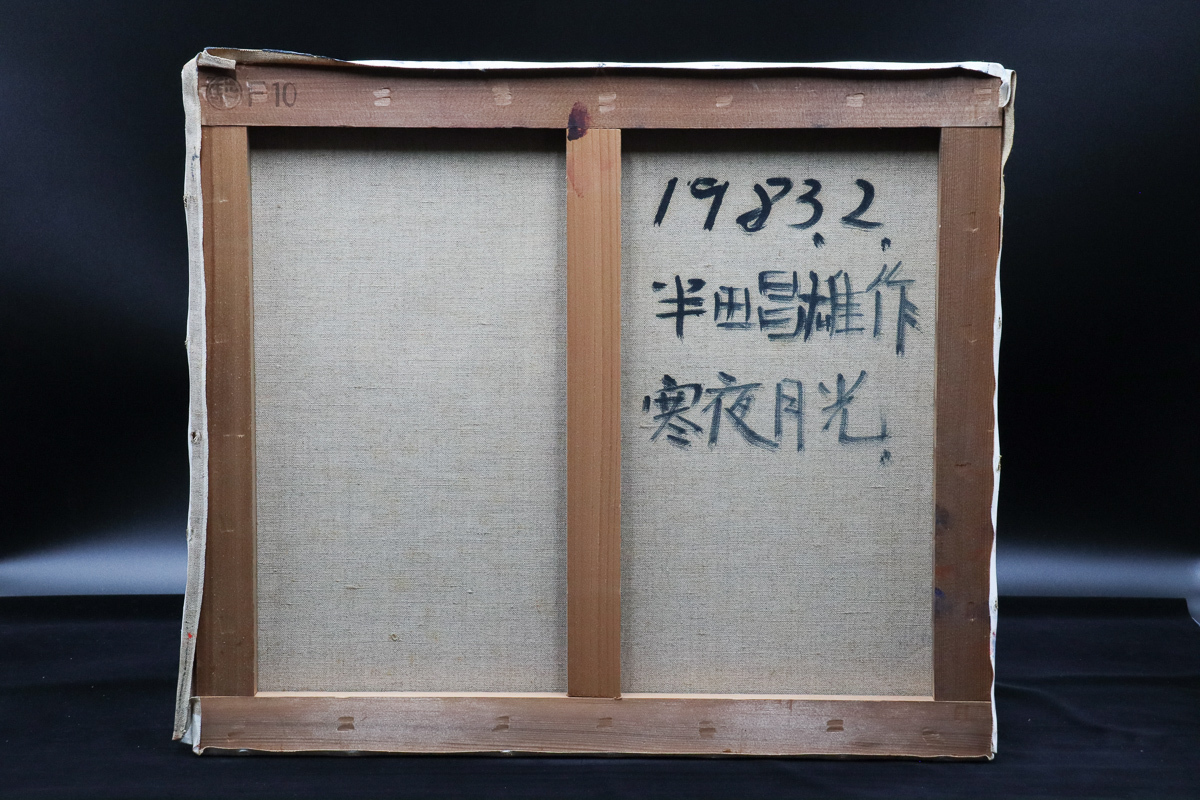 F10
1983.2.
半田昌雄作
寒夜月光.